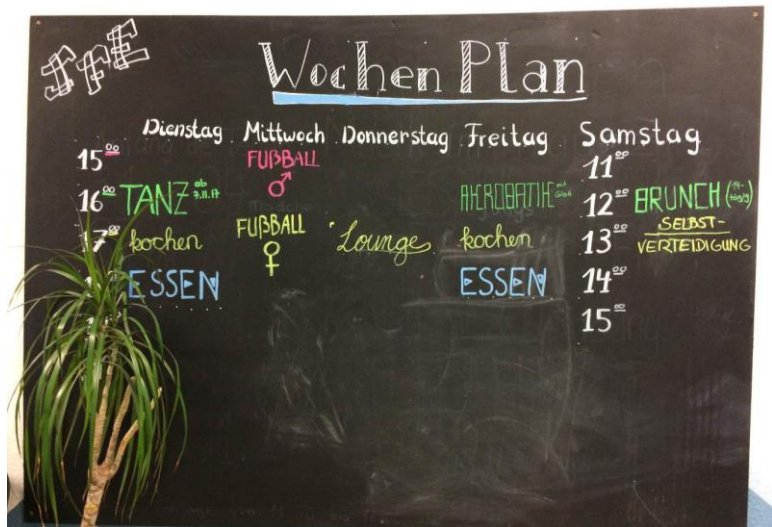 JFE
Wochen Plan
Dienstag Mittwoch Donnerstag Freitag Samstag
15⁰⁰ FUßBALL ♂ 11⁰⁰
16⁰⁰ TANZ ab 7.11.17 AKROBATIK 12⁰⁰ BRUNCH
17⁰⁰ kochen FUßBALL ♀ Lounge kochen 13⁰⁰ SELBST-
VERTEIDIGUNG
ESSEN ESSEN 14⁰⁰
15⁰⁰